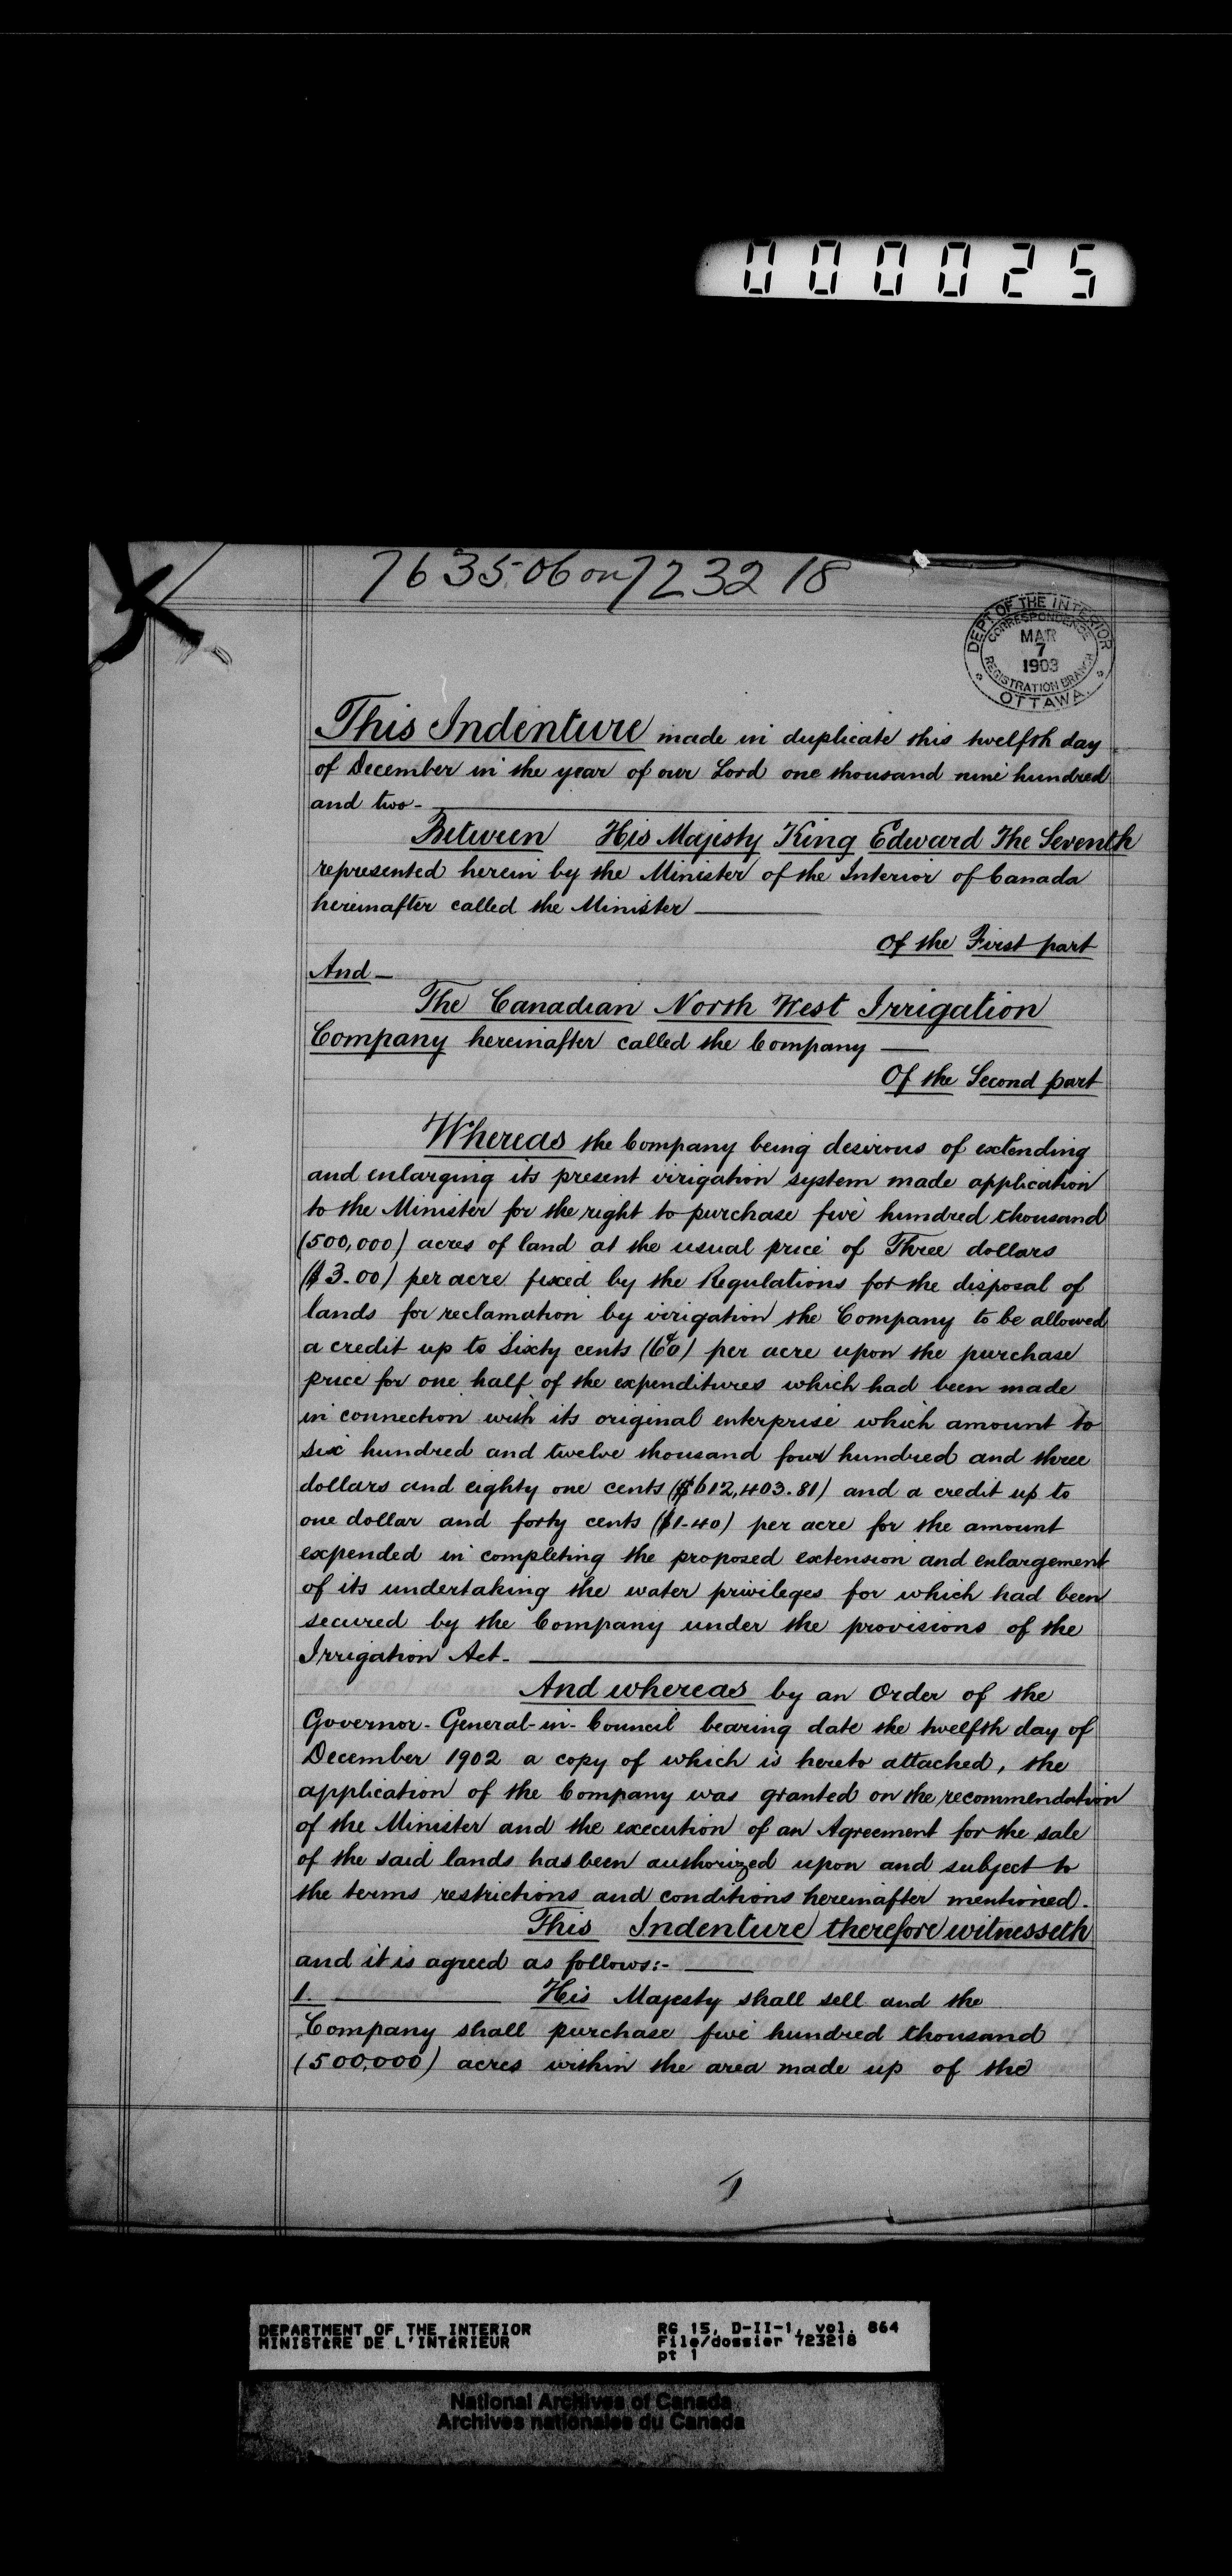 000025
763506 on 723218
DEPT OF THE INTERIOR
CORRESPONDENCE
MAR
7
1903
REGISTRATION BRANCH
OTTAWA.
This Indenture made in duplicate this twelfth day
of December in the year of our Lord one thousand nine hundred
and two-
Between His Majesty King Edward The Seventh
represented herein by the Minister of the Interior of Canada
hereinafter called the Minister
Of the First part
And-
The Canadian North West Irrigation
Company hereinafter called the Company
Of the Second part
Whereas the Company being desirous of extending
and enlarging its present irrigation system made application
to the Minister for the right to purchase five hundred thousand
(500,000) acres of land at the usual price of Three dollars
($3.00) per acre fixed by the Regulations for the disposal of
lands for reclamation by irrigation the Company to be allowed
a credit up to Sixty cents (60¢) per acre upon the purchase
price for one half of the expenditures which had been made
in connection with its original enterprise which amount to
six hundred and twelve thousand four hundred and three
dollars and eighty one cents ($612,403.81) and a credit up to
one dollar and forty cents ($1-40) per acre for the amount
expended in completing the proposed extension and enlargement
of its undertaking the water privileges for which had been
secured by the Company under the provisions of the
Irrigation Act-
And whereas by an Order of the
Governor-General-in-Council bearing date the twelfth day of
December 1902 a copy of which is hereto attached, the
application of the Company was granted on the recommendation
of the Minister and the execution of an Agreement for the sale
of the said lands has been authorized upon and subject to
the terms restrictions and conditions hereinafter mentioned.
This Indenture therefore witnesseth
and it is agreed as follows:-
1. His Majesty shall sell and the
Company shall purchase five hundred thousand
(500,000) acres within the area made up of the
1
DEPARTMENT OF THE INTERIOR RG 15, D-II-1, vol. 864
MINISTÈRE DE L'INTÉRIEUR File/dossier 723218
pt 1
National Archives of Canada
Archives nationales du Canada